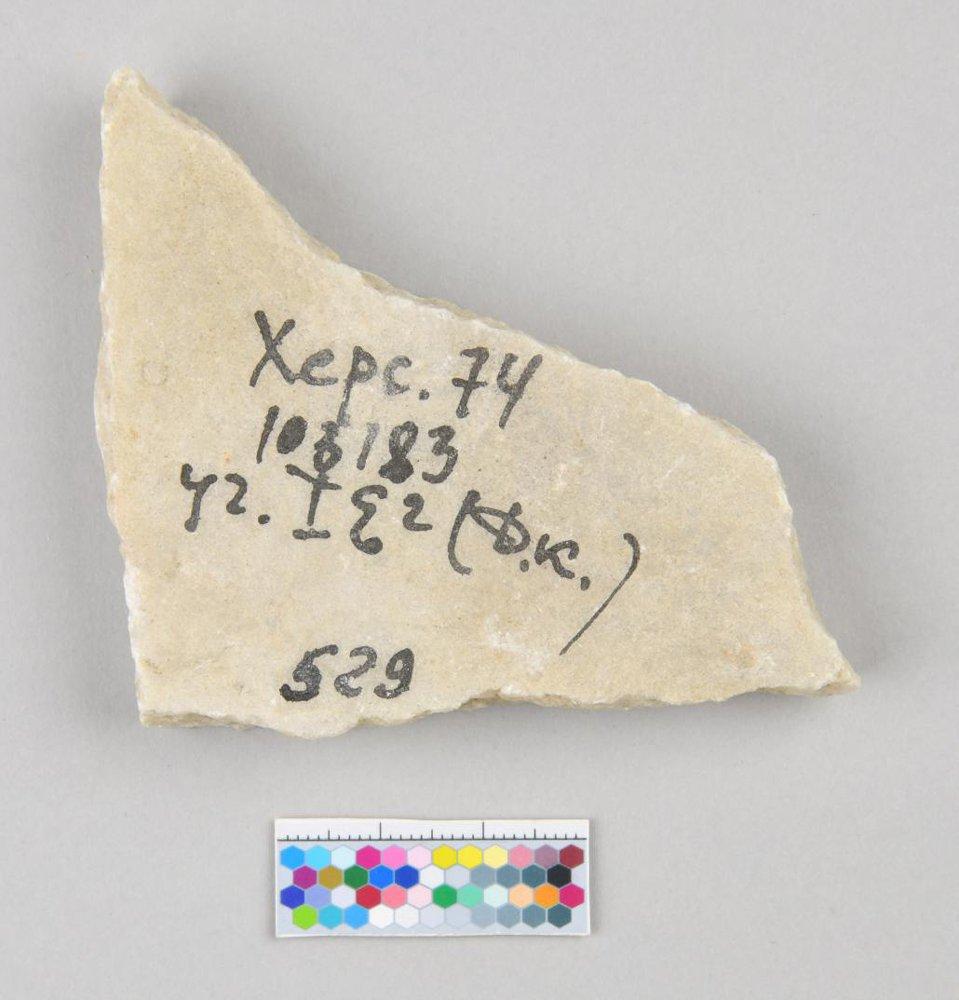 Херс. 74
103183
уг. I Ε2 (Ф.К.)
529